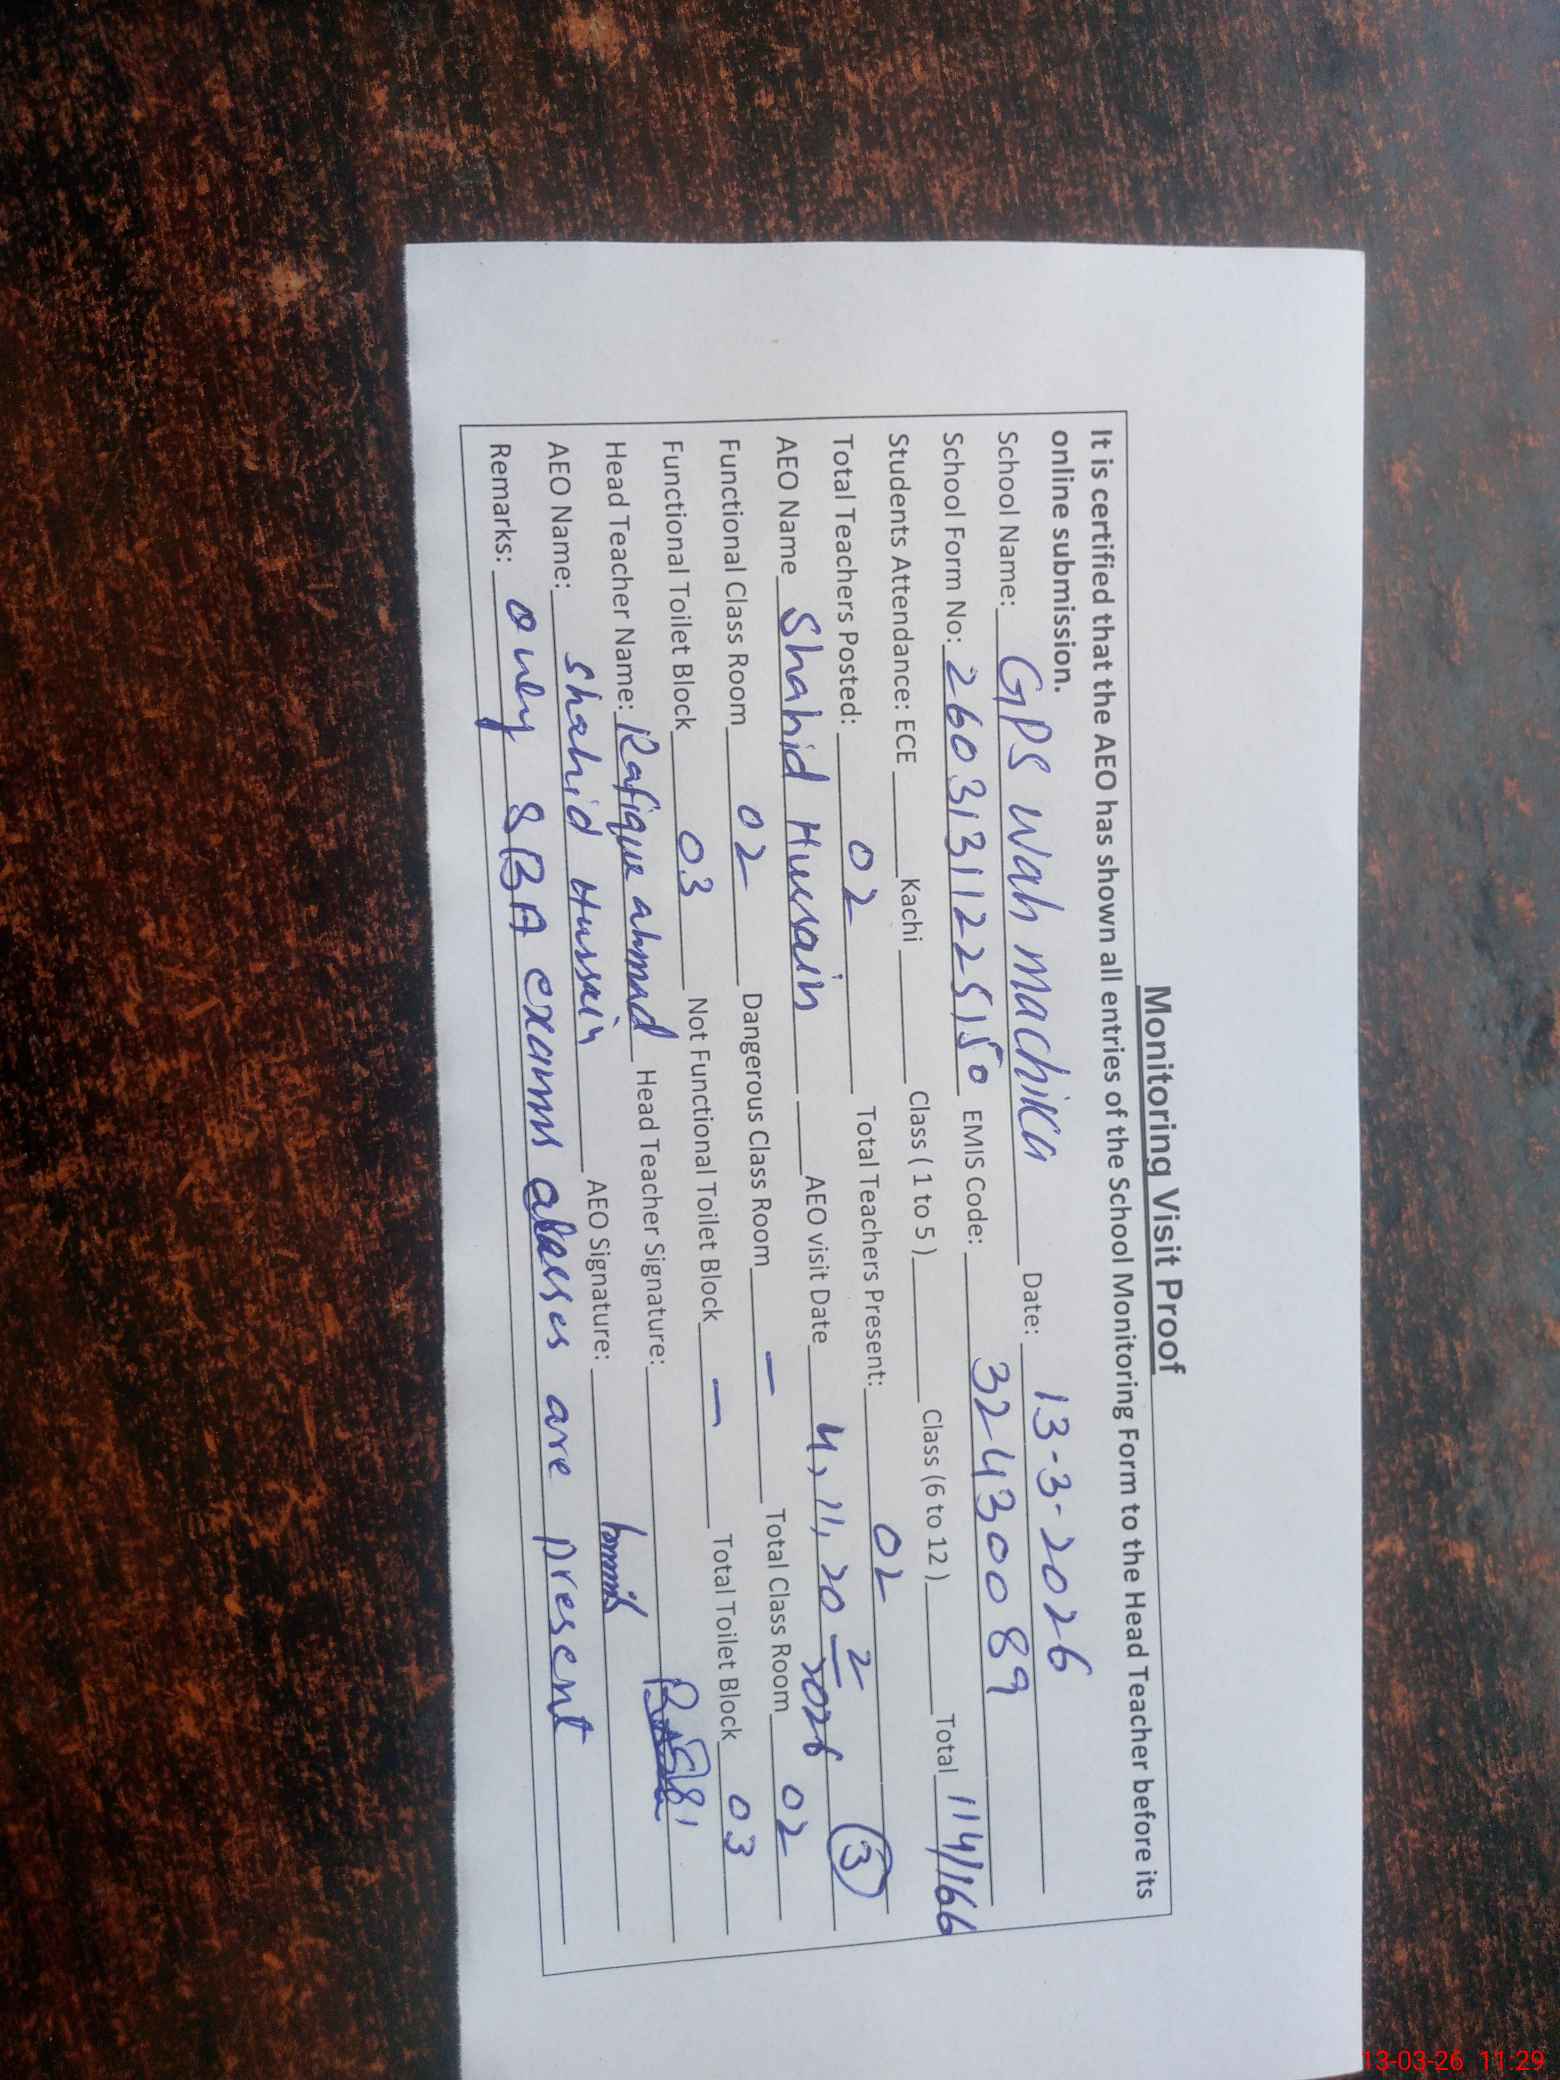 Monitoring Visit Proof
It is certified that the AEO has shown all entries of the School Monitoring Form to the Head Teacher before its
online submission.
School Name: GPS Wah machika Date: 13-3-2026
School Form No: 26031311225150 EMIS Code: 32430089
Students Attendance: ECE Kachi Class ( 1 to 5 ) Class (6 to 12 ) Total 114/166
Total Teachers Posted: 02 Total Teachers Present: 02
AEO Name Shahid Hussain AEO visit Date 4, 11, 20 2/2026 3
Functional Class Room 02 Dangerous Class Room — Total Class Room 02
Functional Toilet Block 03 Not Functional Toilet Block — Total Toilet Block 03
Head Teacher Name: Rafique ahmad Head Teacher Signature:
AEO Name: Shahid Hussain AEO Signature:
Remarks: only SBA exams classes are present
13-03-26 11:29